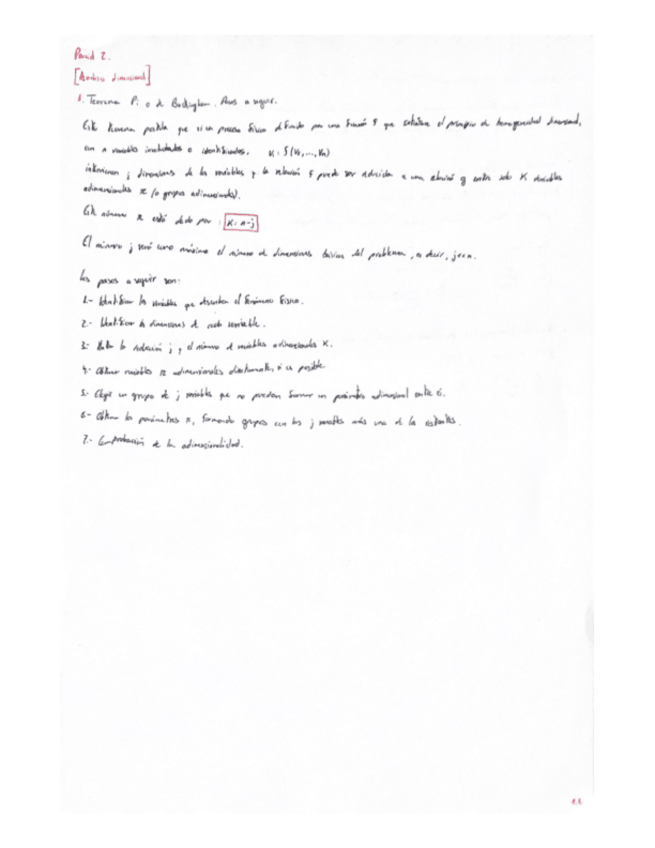 Parcial 2.
[Análisis dimensional]
1. Teorema Pi o de Buckingham. Pasos a seguir.
Este teorema postula que si un proceso físico definido por una función f que satisface el principio de homogeneidad dimensional,
con n variables involucradas o identificadas. V₁ = f(V₂,...,Vn)
intervienen j dimensiones de las variables y la relación f puede ser reducida a una relación g entre solo K variables
adimensionales π (o grupos adimensionales).
Este número π está dado por: K = n-j
El número j será como máximo el número de dimensiones básicas del problema, es decir,
Los pasos a seguir son:
1.- Identificar las variables que describen el fenómeno físico.
2.- Identificar las dimensiones de cada variable.
3.- la reducción j, y el número de variables adimensionales K.
4.- Obtener variables π adimensionales directamente, si es posible.
5.- Elegir un grupo de j variables que no puedan formar un parámetro adimensional entre sí.
6.- Obtener los parámetros π, formando grupos con las j variables más una de las restantes.
7.- Comprobación de la adimensionalidad.